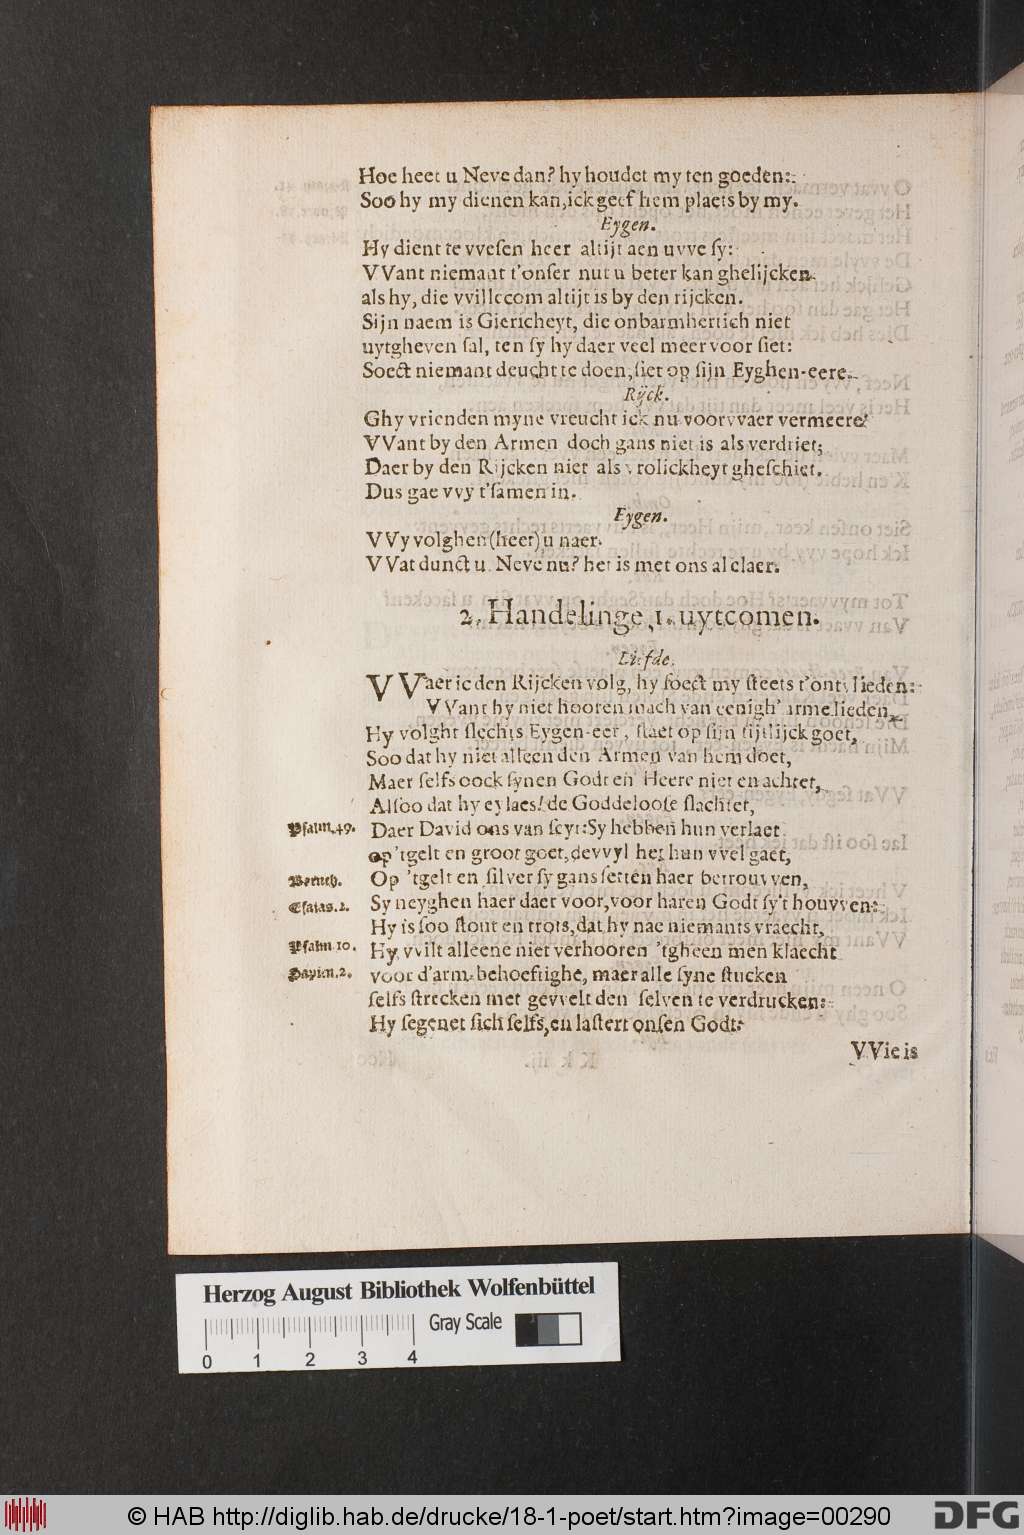 Hoe heet u Neve dan? hy houdet my ten goeden:
Soo hy my dienen kan, ick geef hem plaets by my.
Eygen.
Hy dient te vvesen heer altijt aen uvve sy:
VVant niemant t'onser nut u beter kan ghelijcken
als hy, die vvillecom altijt is by den rijcken.
Sijn naem is Giericheyt, die onbarmhertich niet
uytgheven sal, ten sy hy daer veel meer voor siet:
Soect niemant deucht te doen, siet op sijn Eyghen-eere.
Rijck.
Ghy vrienden myne vreucht ick nu voorvvaer vermeere
VVant by den Armen doch gans niet is als verdriet;
Daer by den Rijcken niet als vrolickheyt gheschiet.
Dus gae vvy t'samen in.
Eygen.
VVy volghen (heer) u naer.
VVat dunct u Neve nu? het is met ons al claer.
2. Handelinge, 1. uytcomen.
Liefde.
VVaer ic den Rijcken volg, hy soect my steets t'ontvlieden:
VVant hy niet hooren mach van eenigh' arme lieden,
Hy volght slechts Eygen-eer, staet op sijn tijtlijck goet,
Soo dat hy niet alleen den Armen van hem doet,
Maer selfs oock synen Godt en Heere niet en achtet,
Alsoo dat hy eylaes! de Goddeloose slachtet,
Psalm. 49. Daer David ons van seyt: Sy hebben hun verlaet
op 'tgelt en groot goet, devvyl het hun vvel gaet,
Baruch. Op 'tgelt en silver sy gans setten haer betrouvven,
Esaias. 2. Sy neyghen haer daer voor, voor haren Godt sy't houvven:
Hy is soo stout en trots, dat hy nae niemants vraecht,
Psalm 10. Hy vvilt alleene niet verhooren 'tgheen men klaecht
Sapien. 2. voor d'arm-behoeftighe, maer alle syne stucken
selfs strecken met gevvelt den selven te verdrucken:
Hy segenet sich selfs, en lastert onsen Godt:
VVie is
Herzog August Bibliothek Wolfenbüttel
Gray Scale
0 1 2 3 4
© HAB http://diglib.hab.de/drucke/18-1-poet/start.htm?image=00290
DFG